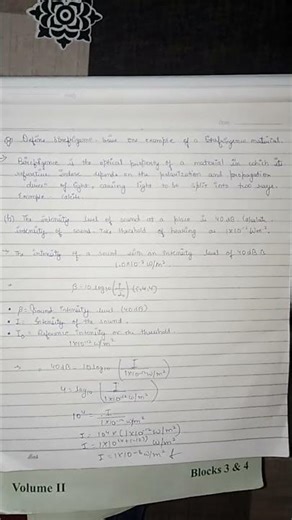 Q) Define birefringence. Give one example of a birefringence material.
→ Birefringence is the optical property of a material in which its
refractive index depends on the polarization and propagation
direction of light, causing light to be split into two rays.
Example Calcite
(b) The intensity level of sound at a place is 40 dB. Calculate
intensity of sound. The threshold of hearing is 1x10⁻¹² Wm⁻².
→ The intensity of a sound with an intensity level of 40 dB is
1.0x10⁻⁸ W/m².
β = 10 log₁₀ (I/I₀)
• β = Sound intensity level (40 dB)
• I = Intensity of the sound.
• I₀ = Reference intensity or the threshold
1x10⁻¹² W/m²
40 dB = 10 log₁₀ (I / 1x10⁻¹² W/m²)
4 = log₁₀ (I / 1x10⁻¹² W/m²)
I = 10⁴ x (1x10⁻¹² W/m²)
W/m²
I = 1x10⁻⁸ W/m²
Blocks 3 & 4
Volume II